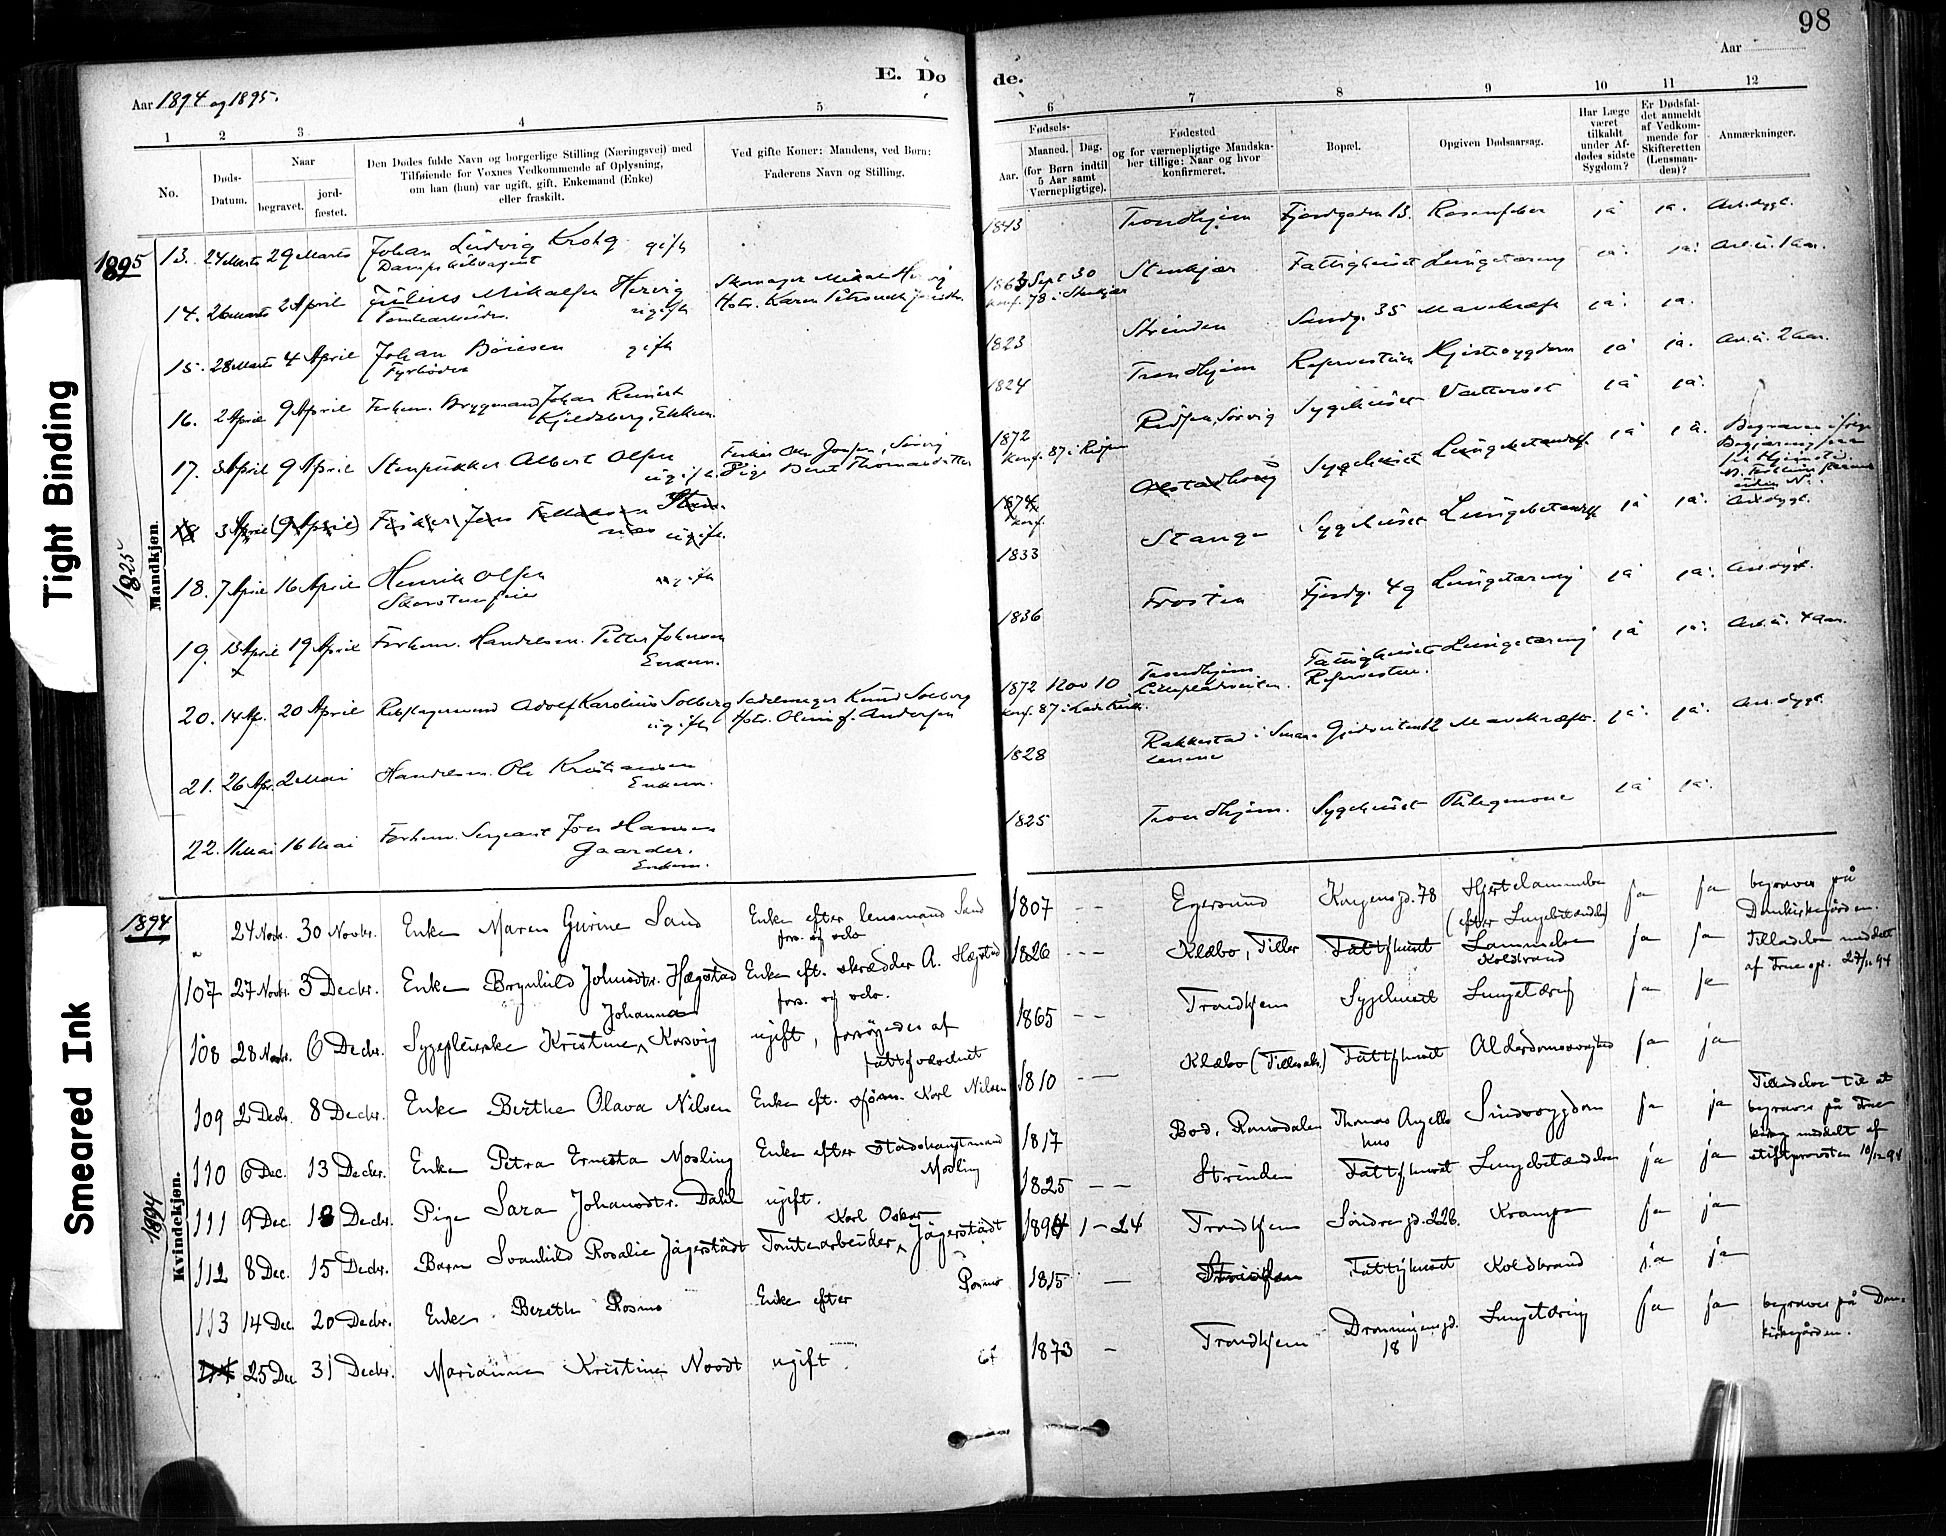 98
Aar
E. Dø
de.
Aar 1894 og 1895.
1 2 3 4 5 6 7 8 9 10 11 12
No.
Døds-
Datum.
Naar
begravet.
jord-
fæstet.
Den Dødes fulde Navn og borgerlige Stilling (Næringsvei) med
Tilføiende for Voxnes Vedkommende af Oplysning,
om han (hun) var ugift, gift, Enkemand (Enke)
eller fraskilt.
Ved gifte Koner: Mandens, ved Børn:
Faderens Navn og Stilling.
Fødsels-
Aar.
Maaned. Dag.
(for Børn indtil
5 Aar samt
Værnepligtige).
Fødested
og for værnepligtige Mandska-
ber tillige: Naar og hvor
konfirmeret.
Bopæl.
Opgiven Dødsaarsag.
Har Læge
været
tilkaldt
under Af-
dødes sidste
Sygdom?
Er Dødsfal-
det anmeldt
af Vedkom-
mende for
Skifteretten
(Lensman-
den)?
Anmærkninger.
Tight Binding
Smeared Ink
1895
Mandkjøn.
1825
13. 24 Marts 29 Marts Johan Ludvig Krohg gift 1843 Trondhjem Fjordgaden 13. Rosenfeber ja ja.
14. 26 Marts 2 April Julius Mikalsen Hervig ugift Skomager Mikal 1863 Sept 30 Stenkjær Fattighuset Lungetæring ja. ja.
Tomtearbeider Hstr. Karen Petronelle konf. 78 i Stenkjær
15. 28 Marts 4 April Johan Börresen gift 1823 Strinden Sandg. 35 Mavekræft ja. ja.
Fyrböder
16. 2 April 9 April Forhenv. Bryggemand Johan Reinert 1824 Trondhjem Hjertesygdom ja ja.
Kjeldsberg, Enkem.
17. 3 April 9 April Stenpukker Albert Olsen ugift. Fisker Ole Jonsen, Sørvig 1872 Sygehuset ja ja.
konf. 87 i
18 3 April (9 April) Fisker Jens ugift. 1874 Sygehuset Lungebetændelse ja ja.
konf.
18. 7 April 16 April Henrik Olsen ugift 1833 Stange Sygehuset Lungebetændelse ja ja.
Skorstensfeier
19. 13 April 19 April Forhenv. Handelsm. Petter Johnsen 1836 Frosten Fjordg. 49 Lungetæring ja ja.
Enkem.
20. 14 Apr. 20 April Rebslagersvend Adolf Karolius Solberg Sadelmager Knud Solberg 1872 Nov 10 Trondhjem Fattighuset Lungetæring ja ja.
ugift Hstr. Olina f. Andersen konf. 87 i Lade Kirke.
21. 26 Apr. 2 Mai Handelsm. Ole Kristiansen 1828 Rakkestad i Smaa- Mavekræft. ja. ja.
Enkem. lenene
22. 11 Mai 16 Mai Forhenv. Sergeant Jon Hansen 1825 Trondhjem. Sygehuset Phlegmone ja ja.
Gaarder.
Enkem.
1894
Kvindekjøn.
1894
" 24 Novbr. 30 Novbr. Enke Maren Gurine Sand Enke efter lensmand Sand 1807 - - Egersund Kongensgd. 78 Hjertelammelse ja ja begraves på
fors. af selv (efter Lungebetændelse) Domkirkegården.
107 27 Novbr. 3 Decbr. Enke Brynhild Johnsdtr. Hægstad Enke eft. skrædder A. Hægstad 1826 - - Klæbo, Tiller Fattighuset Lammelse ja ja Tilladelse meddelt
fors. af selv. Koldbrand 27/11 94
108 28 Novbr. 6 Decbr. Sygepleierske Kristine Johanna Korsvig ugift, forsørgedes af 1865 - - Trondhjem Sygehuset Lungetæring ja ja
fattigvæsenet
109 2 Decbr. 8 Decbr. Enke Berthe Olava Nilsen Enke eft. sjöm. Karl Nilsen 1810 - - Klæbo (Tillersokn) Fattighuset Alderdomssvaghed ja ja
110 6 Dec. 13 Decbr. Enke Petra Ernesta Mosling Enke efter stadshauptmand 1817 Bod, Romsdalen Thomas Angells Sindssygdom ja ja Tilladelse til at
Mosling hus begraves på
kirkeg meddelt af
stiftsprovsten 10/12 94
111 9 Dec. 18 Decbr. Pige Sara Johansdtr. Dahl ugift. 1825 - - Strinden Fattighuset Lungebetændelse ja ja
112 8 Dec. 15 Decbr. Barn Svanhild Rosalie Jägerstädt Tomtearbeider Karl Oskar Jägerstädt 1894 1 - 24 Trondhjem Søndregd. 22b. Krampe ja ja
113 14 Dec. 20 Decbr. Enke Berethe Rosmo Enke efter Rosmo 1815 - Fattighuset Koldbrand ja ja
25 Dec 31 Decbr. Marianna Kristine Noodt ugift. 1873 - Trondhjem Dronningensgd. Lungetæring ja ja begraves på Dom-
18 kirkegården.